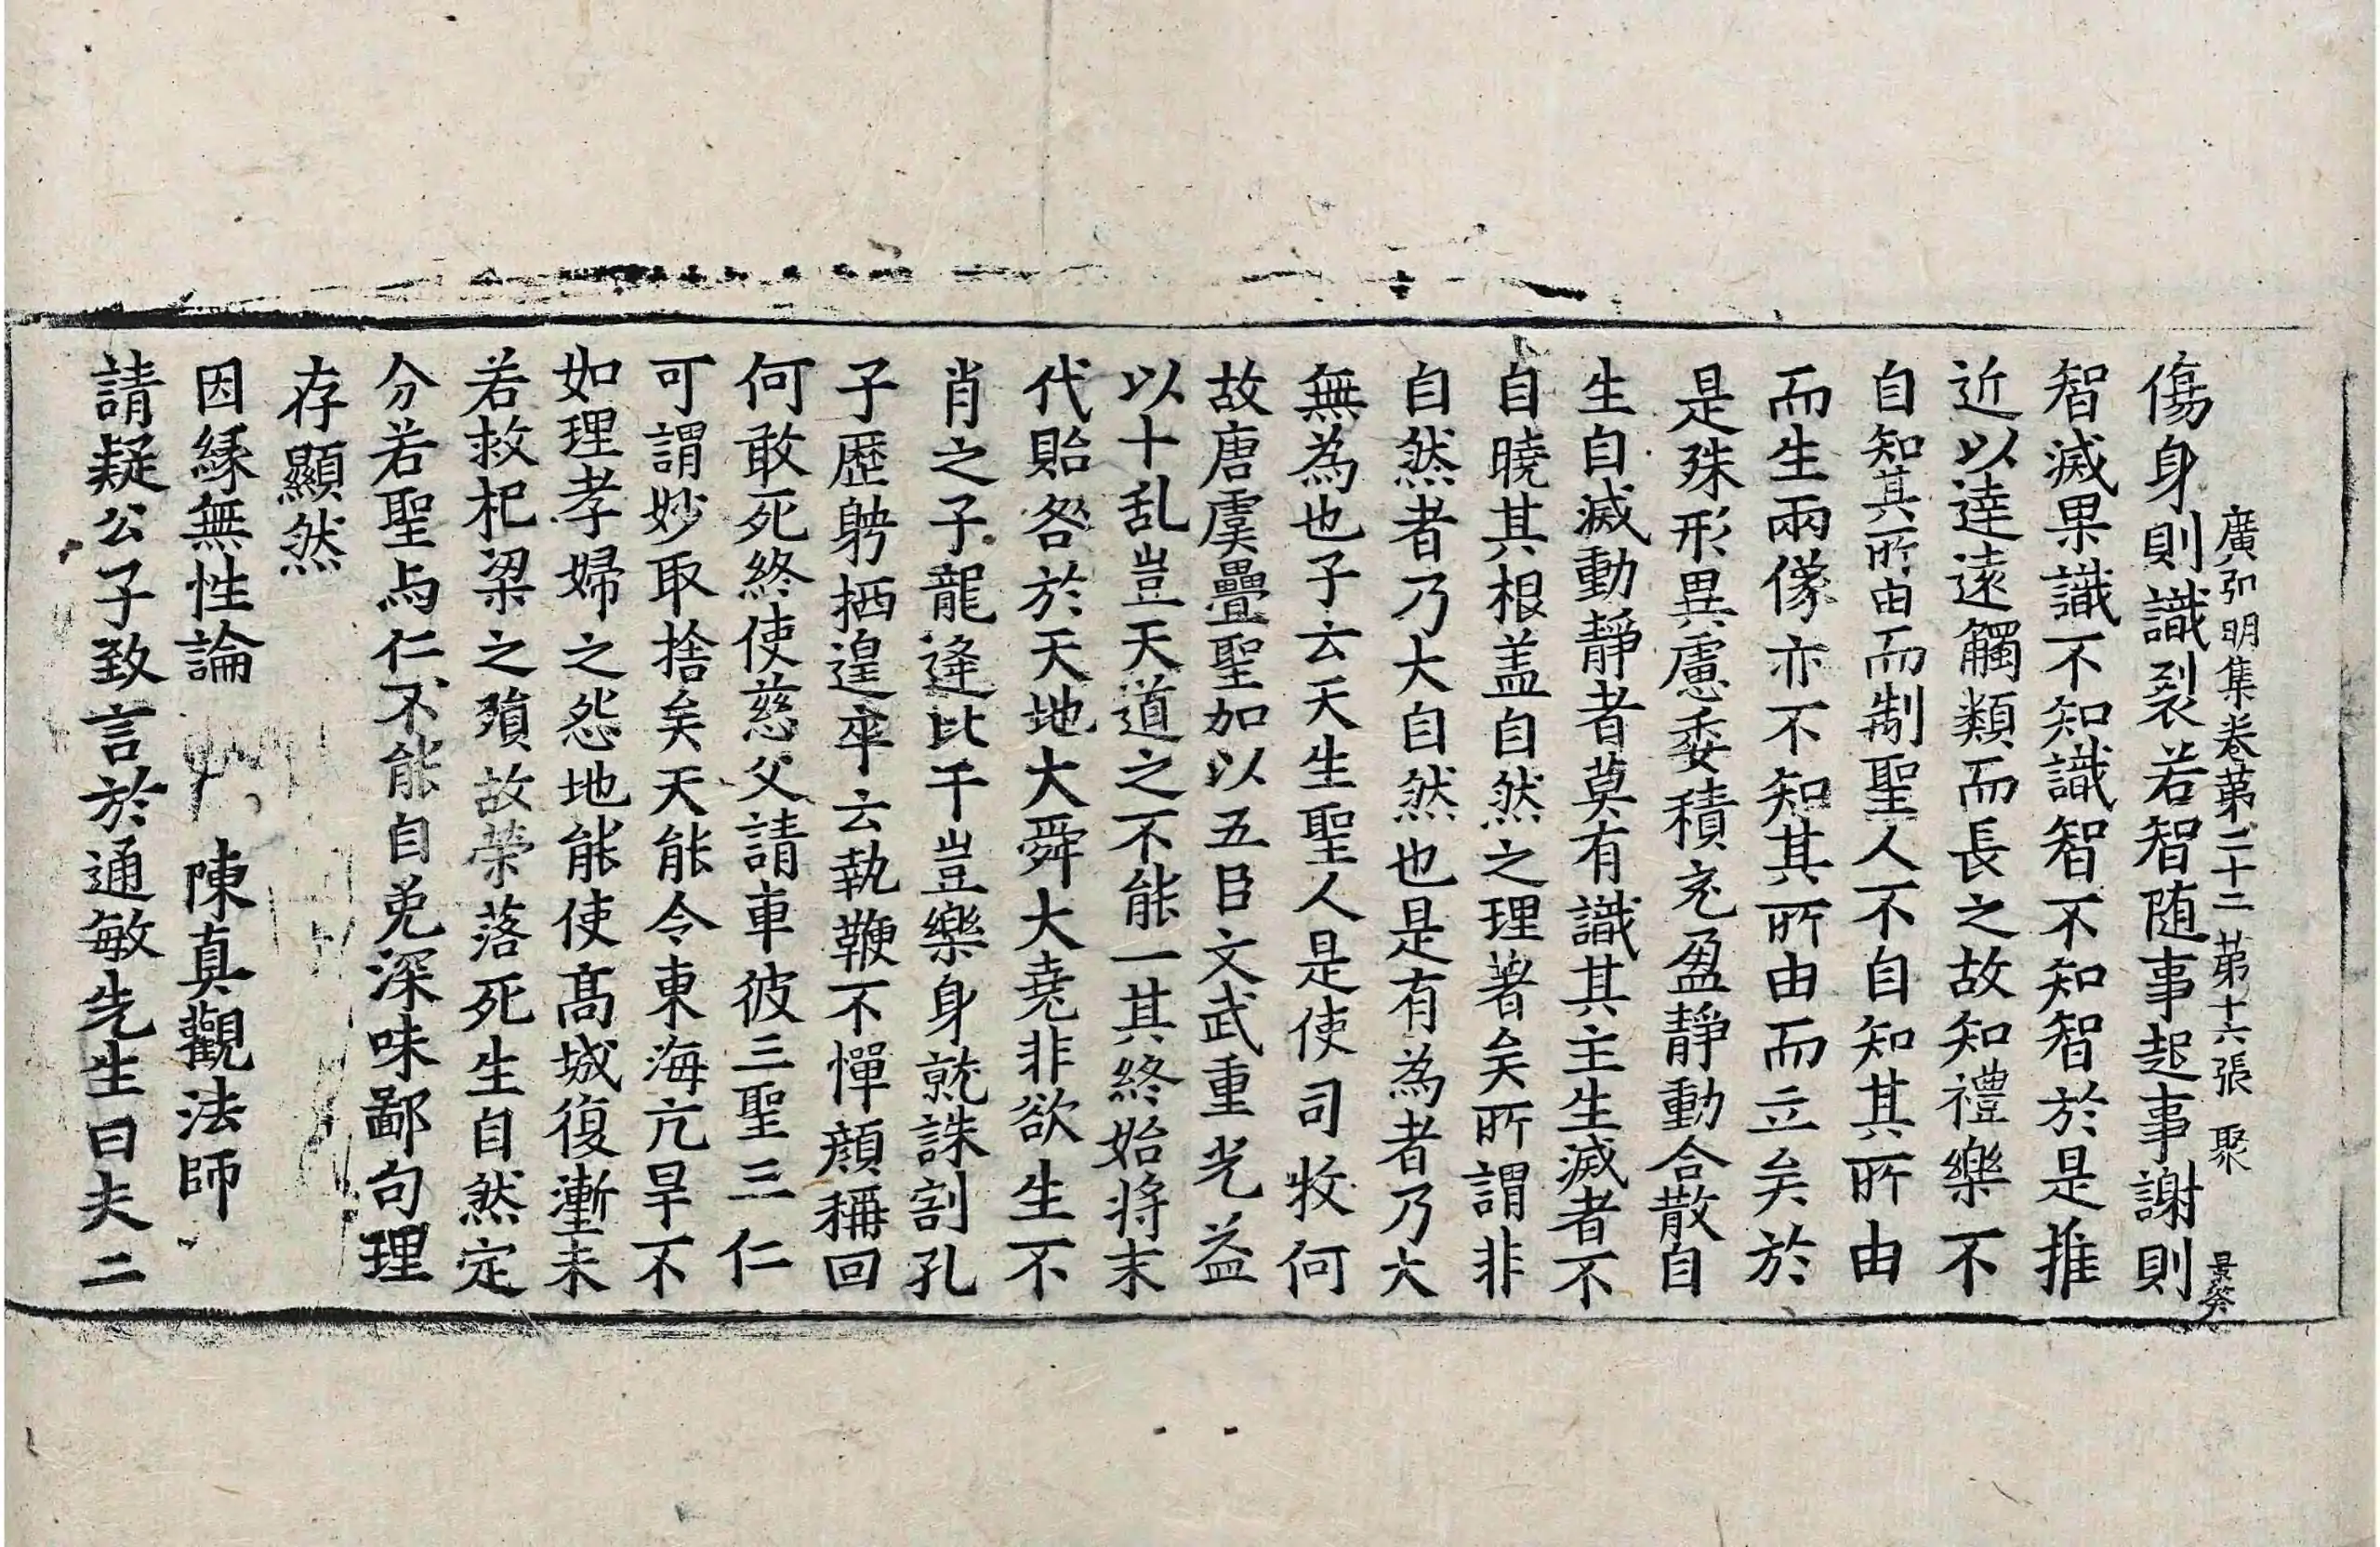 廣弘明集卷第二十二 第十六張 聚 景筞
傷身則識裂若智随事起事謝則
智滅果識不知識智不知智於是推
近以達遠觸類而長之故知禮樂不
自知其所由而制聖人不自知其所由
而生兩像亦不知其所由而立矣於
是殊形異慮委積充盈靜動合散自
生自滅動靜者莫有識其主生滅者不
自曉其根盖自然之理著矣所謂非
自然者乃大自然也是有為者乃大
無為也子云天生聖人是使司牧何
故唐虞疊聖加以五臣文武重光益
以十乱豈天道之不能一其終始将末
代貽咎於天地大舜大堯非欲生不
肖之子龍逄比干豈樂身就誅割孔
子歴聘栖遑卒云執鞭不憚顔稱回
何敢死終使慈父請車彼三聖三仁
可謂妙取捨矣天能令東海亢旱不
如理孝婦之怨地能使髙城復壍未
若救杞梁之殞故榮落死生自然定
分若聖与仁不能自免深味鄙句理
存顯然
因縁無性論 陳真觀法師
請疑公子致言於通敏先生曰夫二